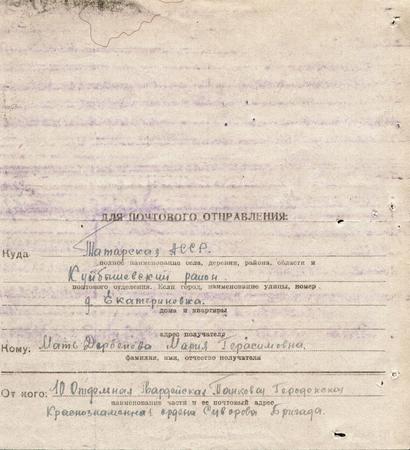 ДЛЯ ПОЧТОВОГО ОТПРАВЛЕНИЯ:
Куда Татарская АССР.
полное наименование села, деревни, района, области и
Куйбышевский район.
почтового отделения. Если город, наименование улицы, номер
д. Екатериновка.
дома и квартиры
адрес получателя
Кому. Мать Дербенова Мария Герасимовна.
фамилия, имя, отчество получателя
От кого: 10 Отдельная Гвардейская Танковая Городокская
наименование части и ее почтовый адрес
Краснознаменная ордена Суворова Бригада.